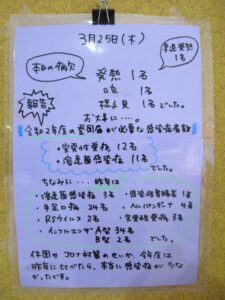 3月25日(木)
早退発熱
1名
本日の病欠
発熱 1名
咳 1名
様子見 1名 でした。
報告
おまけに‥‥。
令和2年度の登園届が必要な感染症者数
・突発性発疹 12名
・溶連菌感染症 11名
でした。
ちなみに‥‥ 昨年は
・溶連菌感染症 3名
・手足口病 24名
・RSウイルス 2名
・インフルエンザ A型 34名
B型 2名
・感染性胃腸炎 1名
・ヘルパンギーナ 4名
・突発性発疹 3名
でした。
休園やコロナ対策のせいか、今年度は
昨年にくらべたら、本当に感染症が少な
かったです。